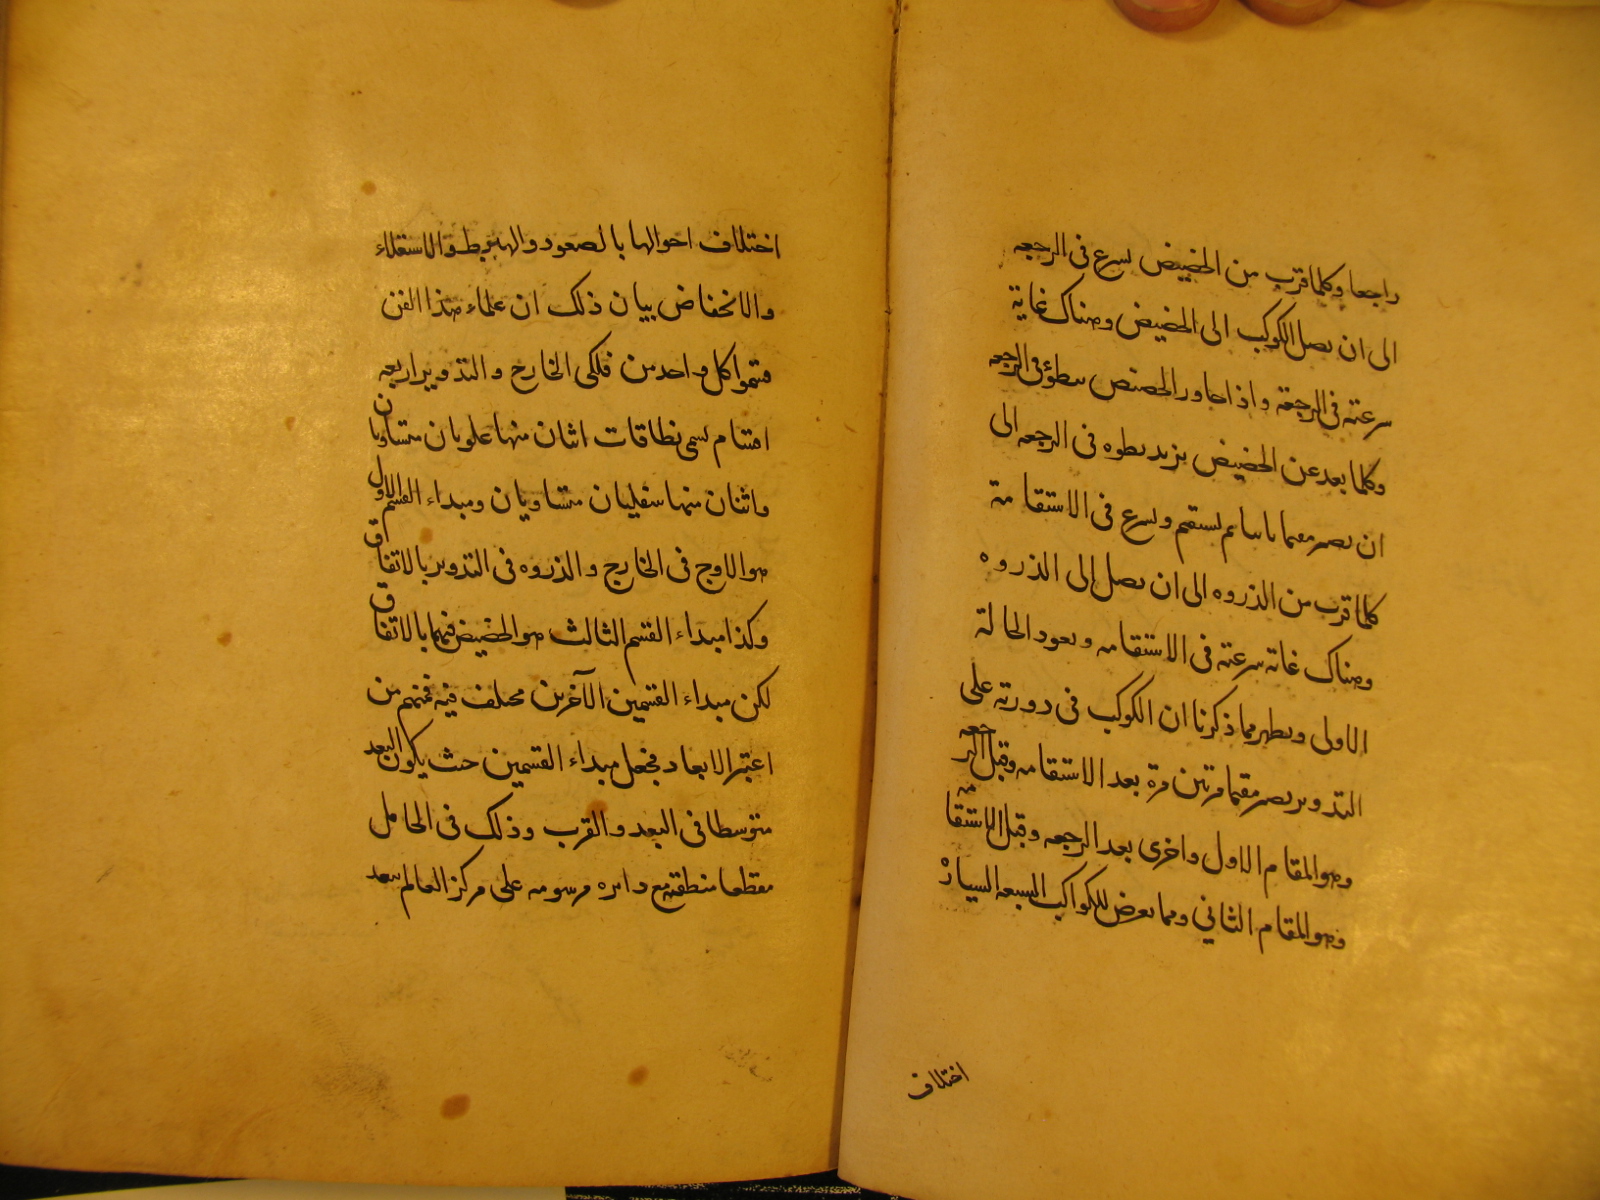 راجعا وكلما قرب من الحضيض يسرع فى الرجعه
الى ان يصل الكوكب الى الحضيض وهناك غاية
سرعته فى الرجعة واذا جاوز الحضيض يبطؤ فى الرجعه
وكلما بعد عن الحضيض يزيد بطوه فى الرجعه الى
ان يصير مقيما ثانيا ثم يستقيم ويسرع فى الاستقامة
كلما قرب من الذروه الى ان يصل الى الذروه
وهناك غاية سرعته فى الاستقامه ويعود الحالة
الاولى ويظهر مما ذكرنا ان الكوكب فى دورته على
التدوير يصير مقيما مرتين مرة بعد الاستقامه وقبل الرجعه
وهو المقام الاول واخرى بعد الرجعه وقبل الاستقامة
وهو المقام الثاني ومما يعرض للكواكب السبعه السيارة
اختلاف
اختلاف احوالها بالصعود والهبوط والاستعلاء
والانخفاض بيان ذلك ان علماء هذا الفن
قسموا كل واحد من فلكى الخارج والتدوير اربعه
اقسام يسمى نطاقات اثنان منها علويان متساويان
واثنان منها سفليان متساويان ومبداء القسم الاول
هو الاوج فى الخارج والذروه فى التدوير بالاتفاق
وكذا مبداء القسم الثالث هو الحضيض فيهما بالاتفاق
لكن مبداء القسمين الآخرين مختلف فيه فمنهم من
اعتبر الابعاد فجعل مبداء القسمين حيث يكون البعد
متوسطا فى البعد والقرب وذلك فى الحامل
مقطعا منطقته مع دايره مرسومه على مركز العالم ببعد